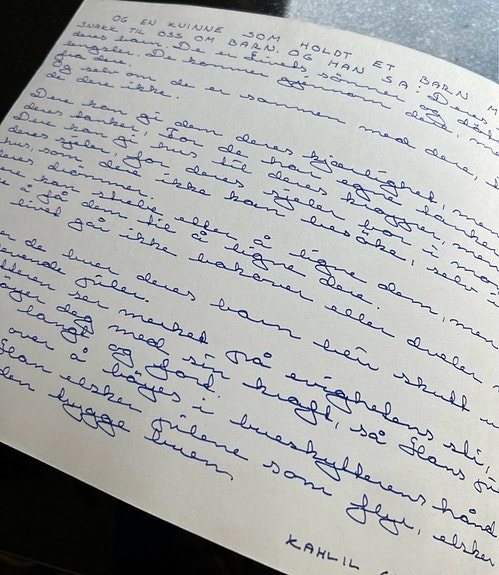 OG EN KVINNE SOM HOLDT ET BARN
SNAKK TIL OSS OM BARN. OG HAN SA: Deres
deres barn. De er Livets sønner og
lengsler. De kommer gjennom dere,
fra dere.
Og selv om de er sammen med dere,
de dere ikke.
Dere kan gi dem deres kjærlighet, men
deres tanker, For de har egne tanker.
Dere kan gi hus til deres kropper, men
deres sjeler, for deres sjeler bor i
hus, som dere ikke kan besøke, selv
deres drømmer.
kan strebe etter å ligne dem, men
å få dem til å ligne dere.
livet går ikke bakover eller dveler
de buer deres barn blir skutt
levende piler.
ser merket på evighetens sti,
deg med sin kraft, så Hans
langt og fort.
over å bøyes i bueskytterens hånd
Han elsker pilene som flyr, elsker
den trygge buen.
KAHLIL